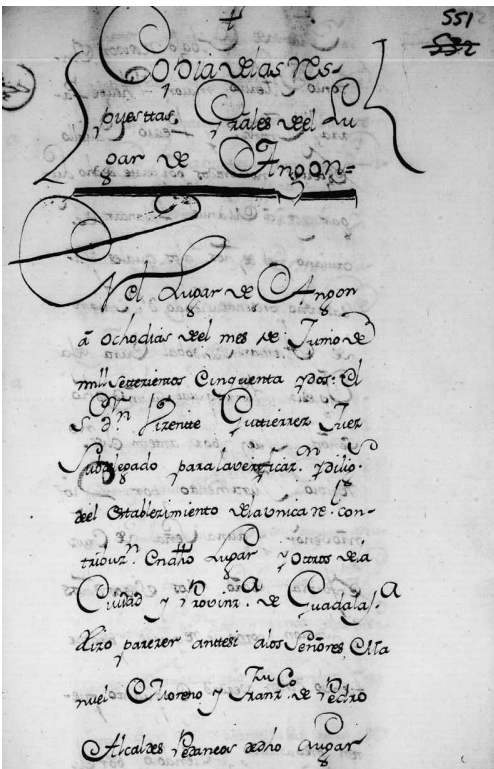 551
532
Copia de las Res-
puesttas, Grales deel Lu
gar de Angon=
En el Lugar de Angon
â ocho dias deel mes de Junio de
mill settezientos Cinquenta y dos: el
S. Dn Vizentte Guttierrez Juez
Subdelegado para la verificaz.n y dilig.s
deel establezimiento de la Unica R.l con-
tribuz.n en dho Lugar y ottros de la
Ciudad y Provinz.a de Guadalaj.a
hizo parezer anttesi a los Señores Ma
nuel Moreno y Franz.co de Pedro
Alcaldes Pedaneos de dho Lugar